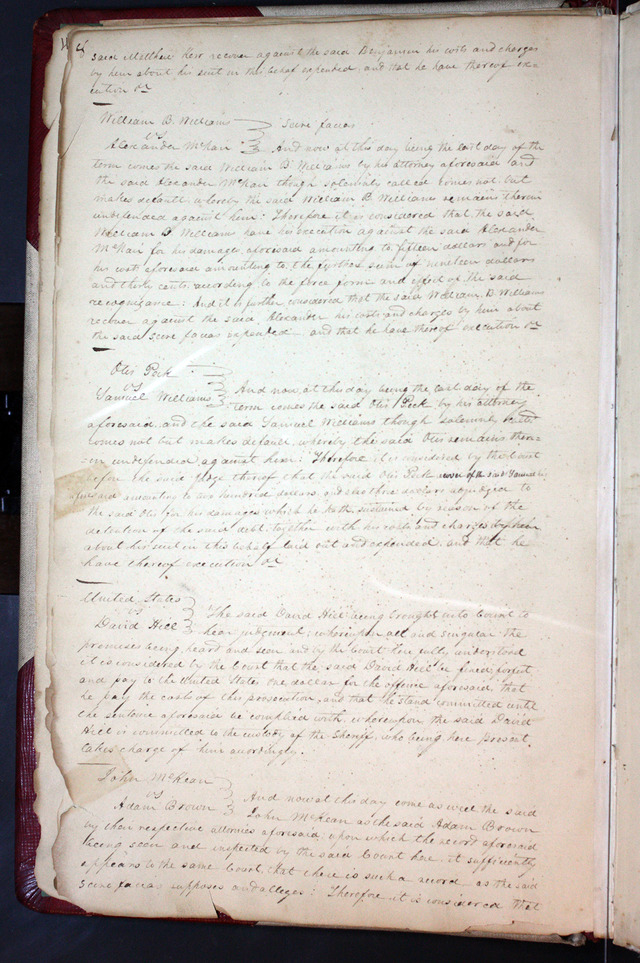 said Matthew Kerr recover against the said Benjamin his costs and charges
by him about his suit in this behalf expended and that he have thereof exe=
cution &c
William B. Williams
vs
Alexander McNair
Scire facias
And now at this day being the last day of the
term comes the said William B. Williams by his attorney aforesaid and
the said Alexander McNair though solemnly called comes not but
makes default whereby the said William B. Williams remains therein
undefended against him: Therefore it is considered that the said
William B Williams have his execution against the said Alexander
McNair for his damages aforesaid amounting to fifteen dollars and for
his costs aforesaid amounting to the further sum of nineteen dollars
and thirty cents according to the force form and effect of the said
recognizance: And it is further considered that the said William B. Williams
recover against the said Alexander his costs and charges by him about
the said scire facias expended and that he have thereof execution &c
Otis Peck
vs
Samuel Williams
And now at this day being the last day of the
term comes the said Otis Peck by his attorney
aforesaid, and the said Samuel Williams though solemnly called
comes not but makes default, whereby the said Otis remains there=
in undefended against him: Therefore it is considered by the Court
before the said Judge thereof that the said Otis Peck recover of the said Samuel his
aforesaid amounting to two hundred dollars, and also three dollars adjudged to
the said Otis for his damages which he hath sustained by reason of the
detention of the said debt together with his costs and charges by him
about his suit in this behalf laid out and expended and that he
have thereof execution &c
United States
vs
David Hill
The said David Hill being brought into Court to
hear judgement; whereupon all and singular the
premises being heard and seen and by the Court here fully understood
it is considered by the Court that the said David Hill be fined, forfeit
and pay to the United States one dollar for the offence aforesaid, that
he pay the costs of this prosecution, and that he stand committed until
the sentence aforesaid be complied with, whereupon the said David
Hill is committed to the custody of the Sheriff, who being here present
takes charge of him accordingly.
John McKean
vs
Adam Brown
And now at this day come as well the said
John McKean as the said Adam Brown
by their respective attornies aforesaid; upon which the record aforesaid
being seen and inspected by the said Court here it sufficiently
appears to the same Court, that there is such a record as the said
Scire facias supposes and alleges: Therefore it is considered that